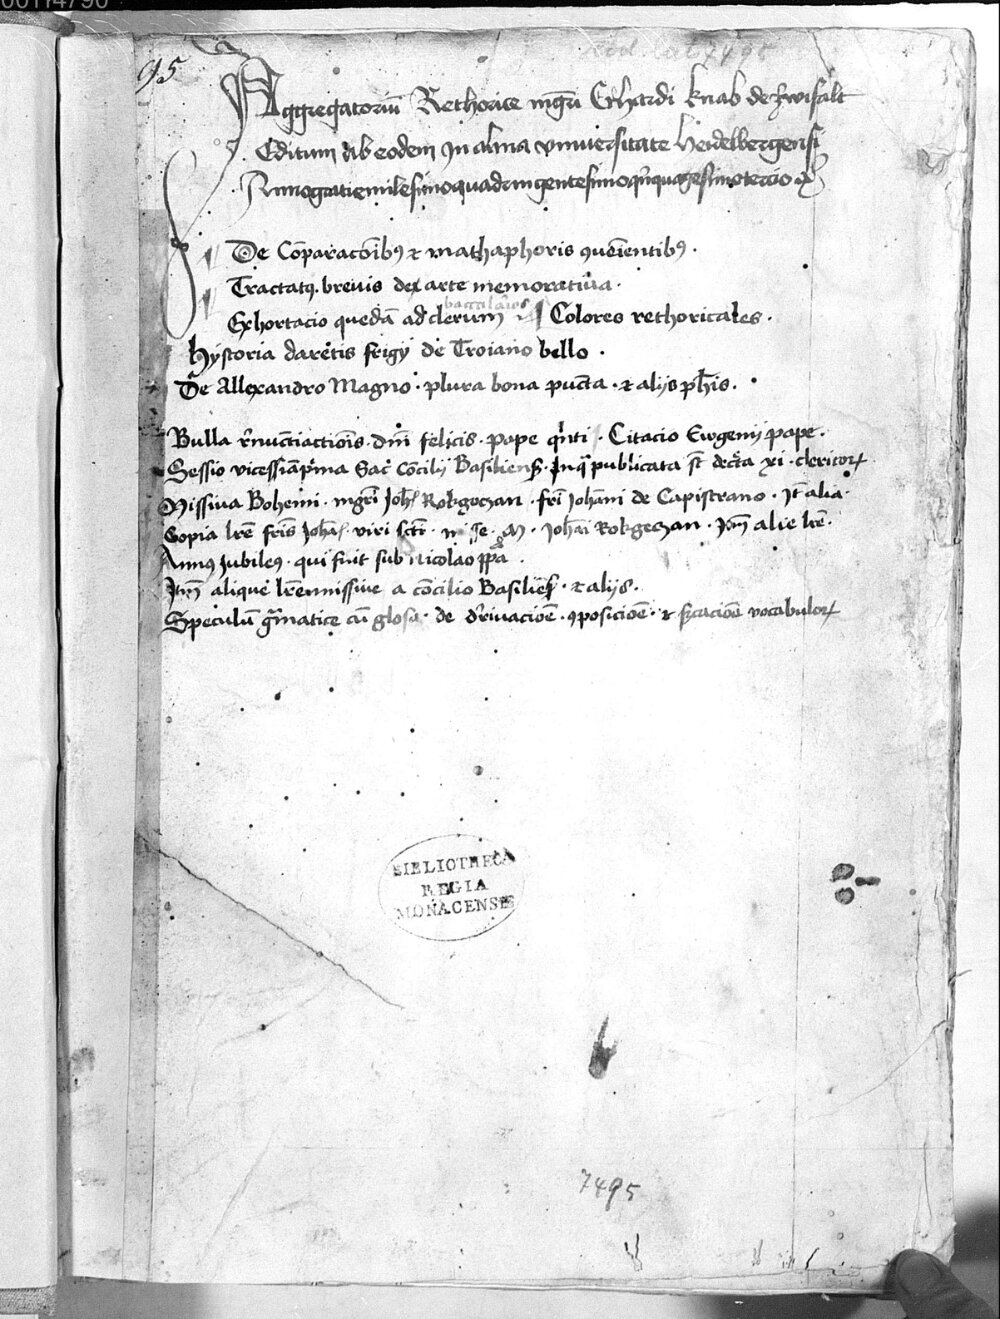 Cod. lat. 7495
95
Aggregatoriũ Rethorice mgrĩ Erhardi knab de zwifalt
Editum Ab eodem In alma vniuersitate Heidelbergensi
Anno gratie milesimo quadringentesimo q̃nquagesimo tercio
De Cõparacõibꝯ ⁊ mathaphoris ꝯueĩentibꝯ .
Tractatꝯ . breuis de arte memoratiua .
baccalarios
Exhortacio quedã ad clerum ¶ Colores rethoricales .
Hystoria darẽtis frigij de Troiano bello .
De Allexandro Magno . plura bona pũcta . ⁊ alijs pħis .
Bulla r̃nũctiactiõis . dñi felicis . pape q̃nti . Citacio Ewgenij pape .
Sessio vicessiãp̃ma Sac̃ Cõcilij Basiliens̃ . In q̃ publicata st̃ dec̃ta xi . clericoꝝ
Missiua Bohemi . mgrĩ Joħ Rokgeczan . fr̃i Joħani de Capistrano . Jt̃ alia .
Copia lr̃e fr̃is Joħ . viri sctĩ . Joħãi Rokgeczan . Jtm̃ alie lr̃e .
Annꝯ Jubileꝯ . qui fuit sub Nicolao pp̃a .
Jtm̃ alique lr̃e missiue a cõcilio Basiliens̃ . ⁊ alijs .
Speculũ gr̃matice cũ glosa . de d̾riuacioẽ . ꝯposicioẽ . ⁊ sg̃cacioẽ vocabuloꝝ
BIBLIOTHECA
REGIA
MONACENSIS
7495